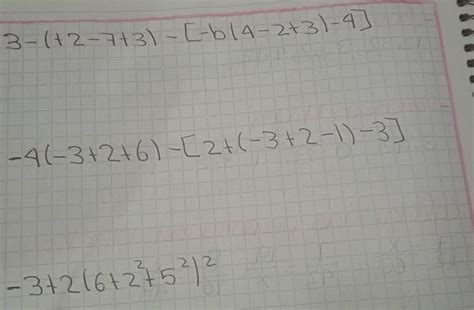 3-(+2-7+3)-[-6(4-2+3)-4]
-4(-3+2+6)-[2+(-3+2-1)-3]
-3+2(6+2²+5²)²